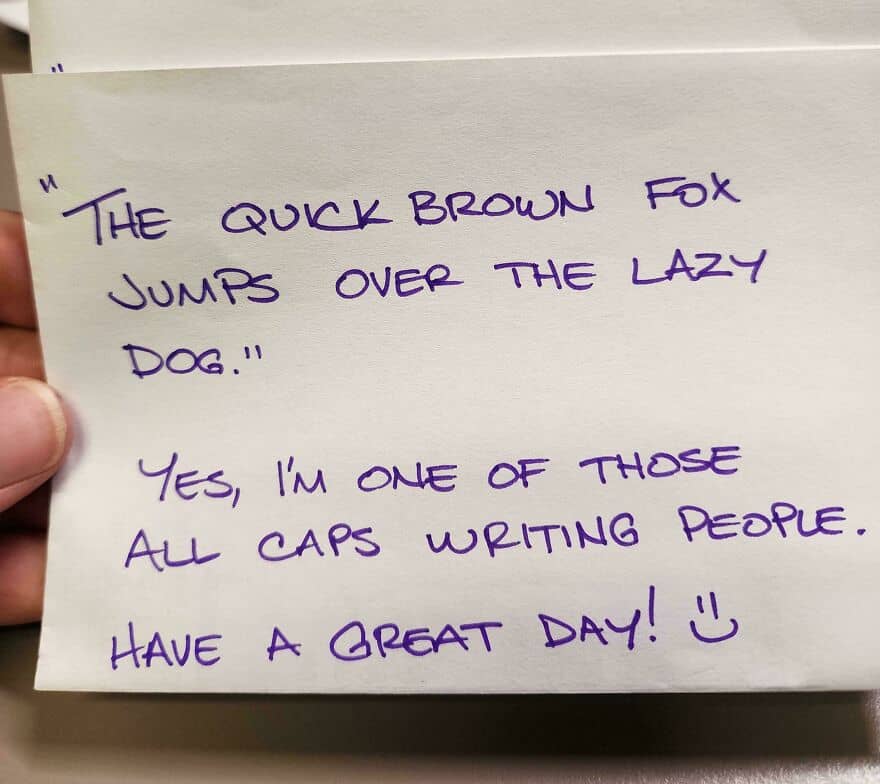 "THE QUICK BROWN FOX
JUMPS OVER THE LAZY
DOG."
YES, I'M ONE OF THOSE
ALL CAPS WRITING PEOPLE.
HAVE A GREAT DAY! :)